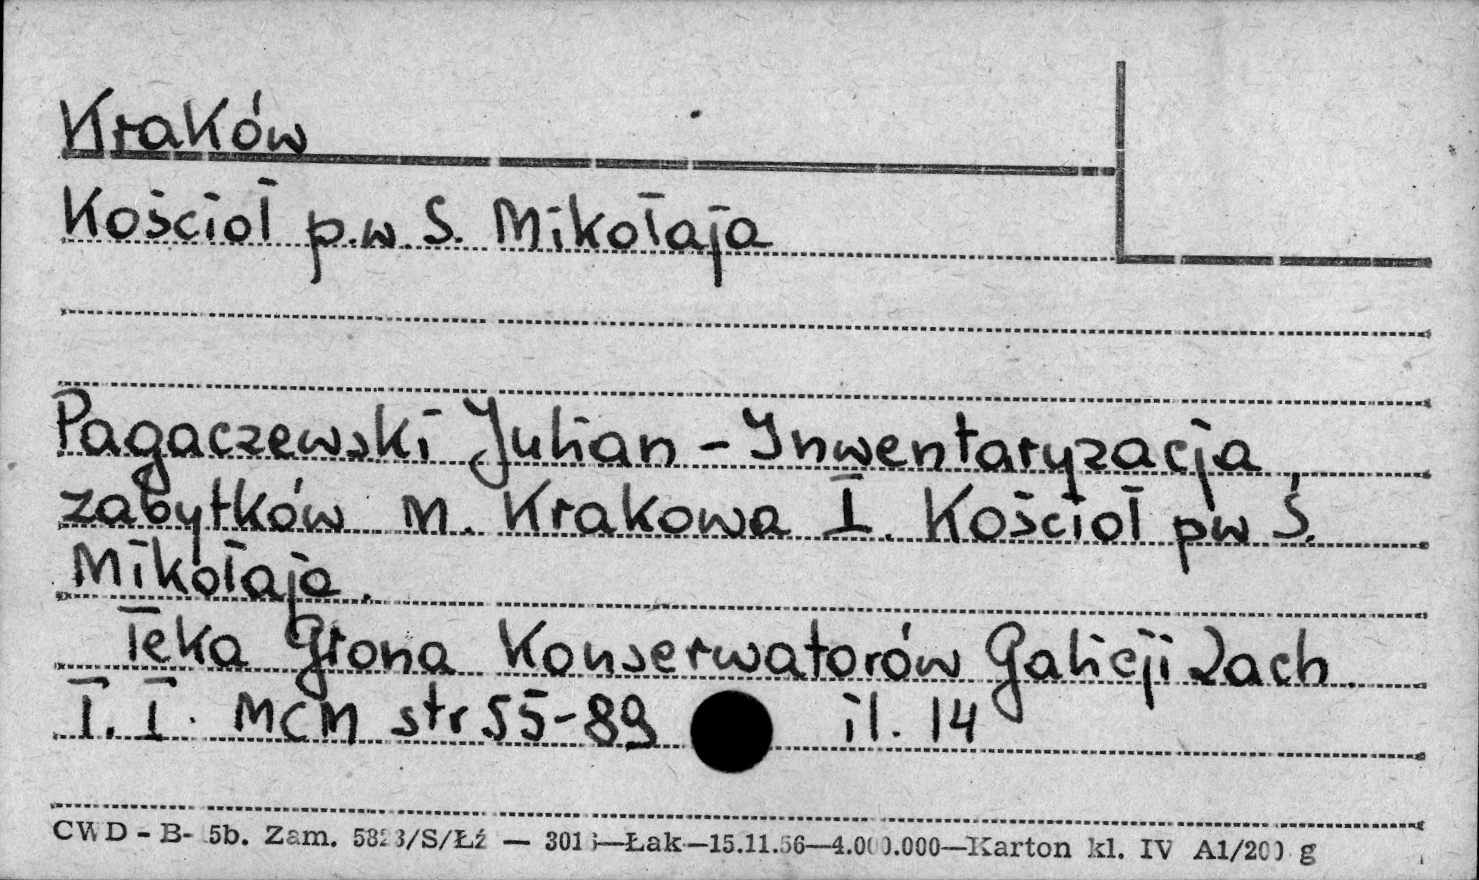 Kraków
Kościoł p.w. S. Mikołaja
Pagaczewski Julian – Inwentaryzacja
zabytków m. Krakowa I. Kościoł pw Ś.
Mikołaja.
Teka Grona Konserwatorów Galicji Zach.
T. I. MCM str 55-89 il. 14
CWD - B- 5b. Zam. /S/Łź — —Łak—15.11.56—4.000.000—Karton kl. IV A1/200 g